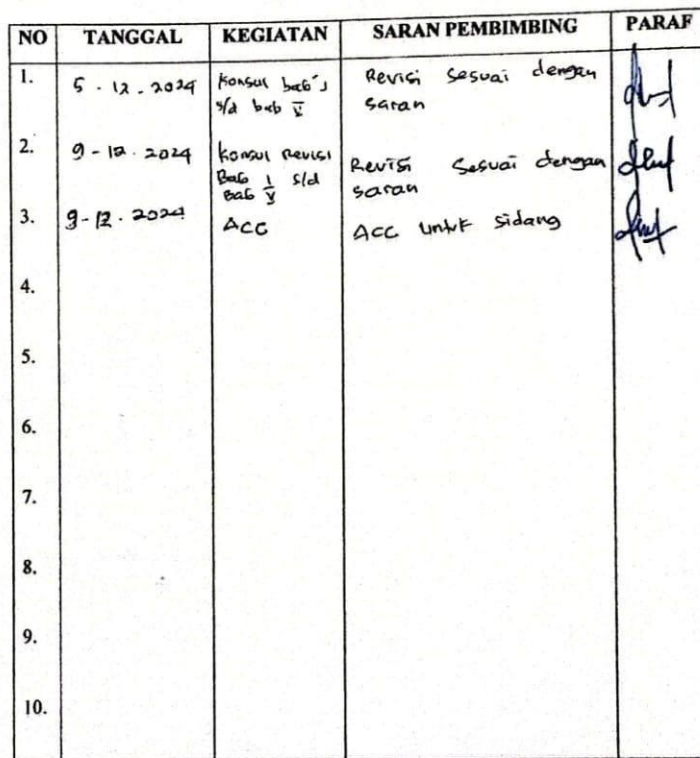 NO TANGGAL KEGIATAN SARAN PEMBIMBING PARAF
1. 5 . 12 . 2024 Konsul bab I Revisi Sesuai dengan
s/d bab V saran
2. 9 - 12 . 2024 Konsul Revisi Revisi Sesuai dengan
Bab I s/d saran
Bab V
3. 9 - 12 . 2024 ACC ACC Untuk Sidang
4.
5.
6.
7.
8.
9.
10.